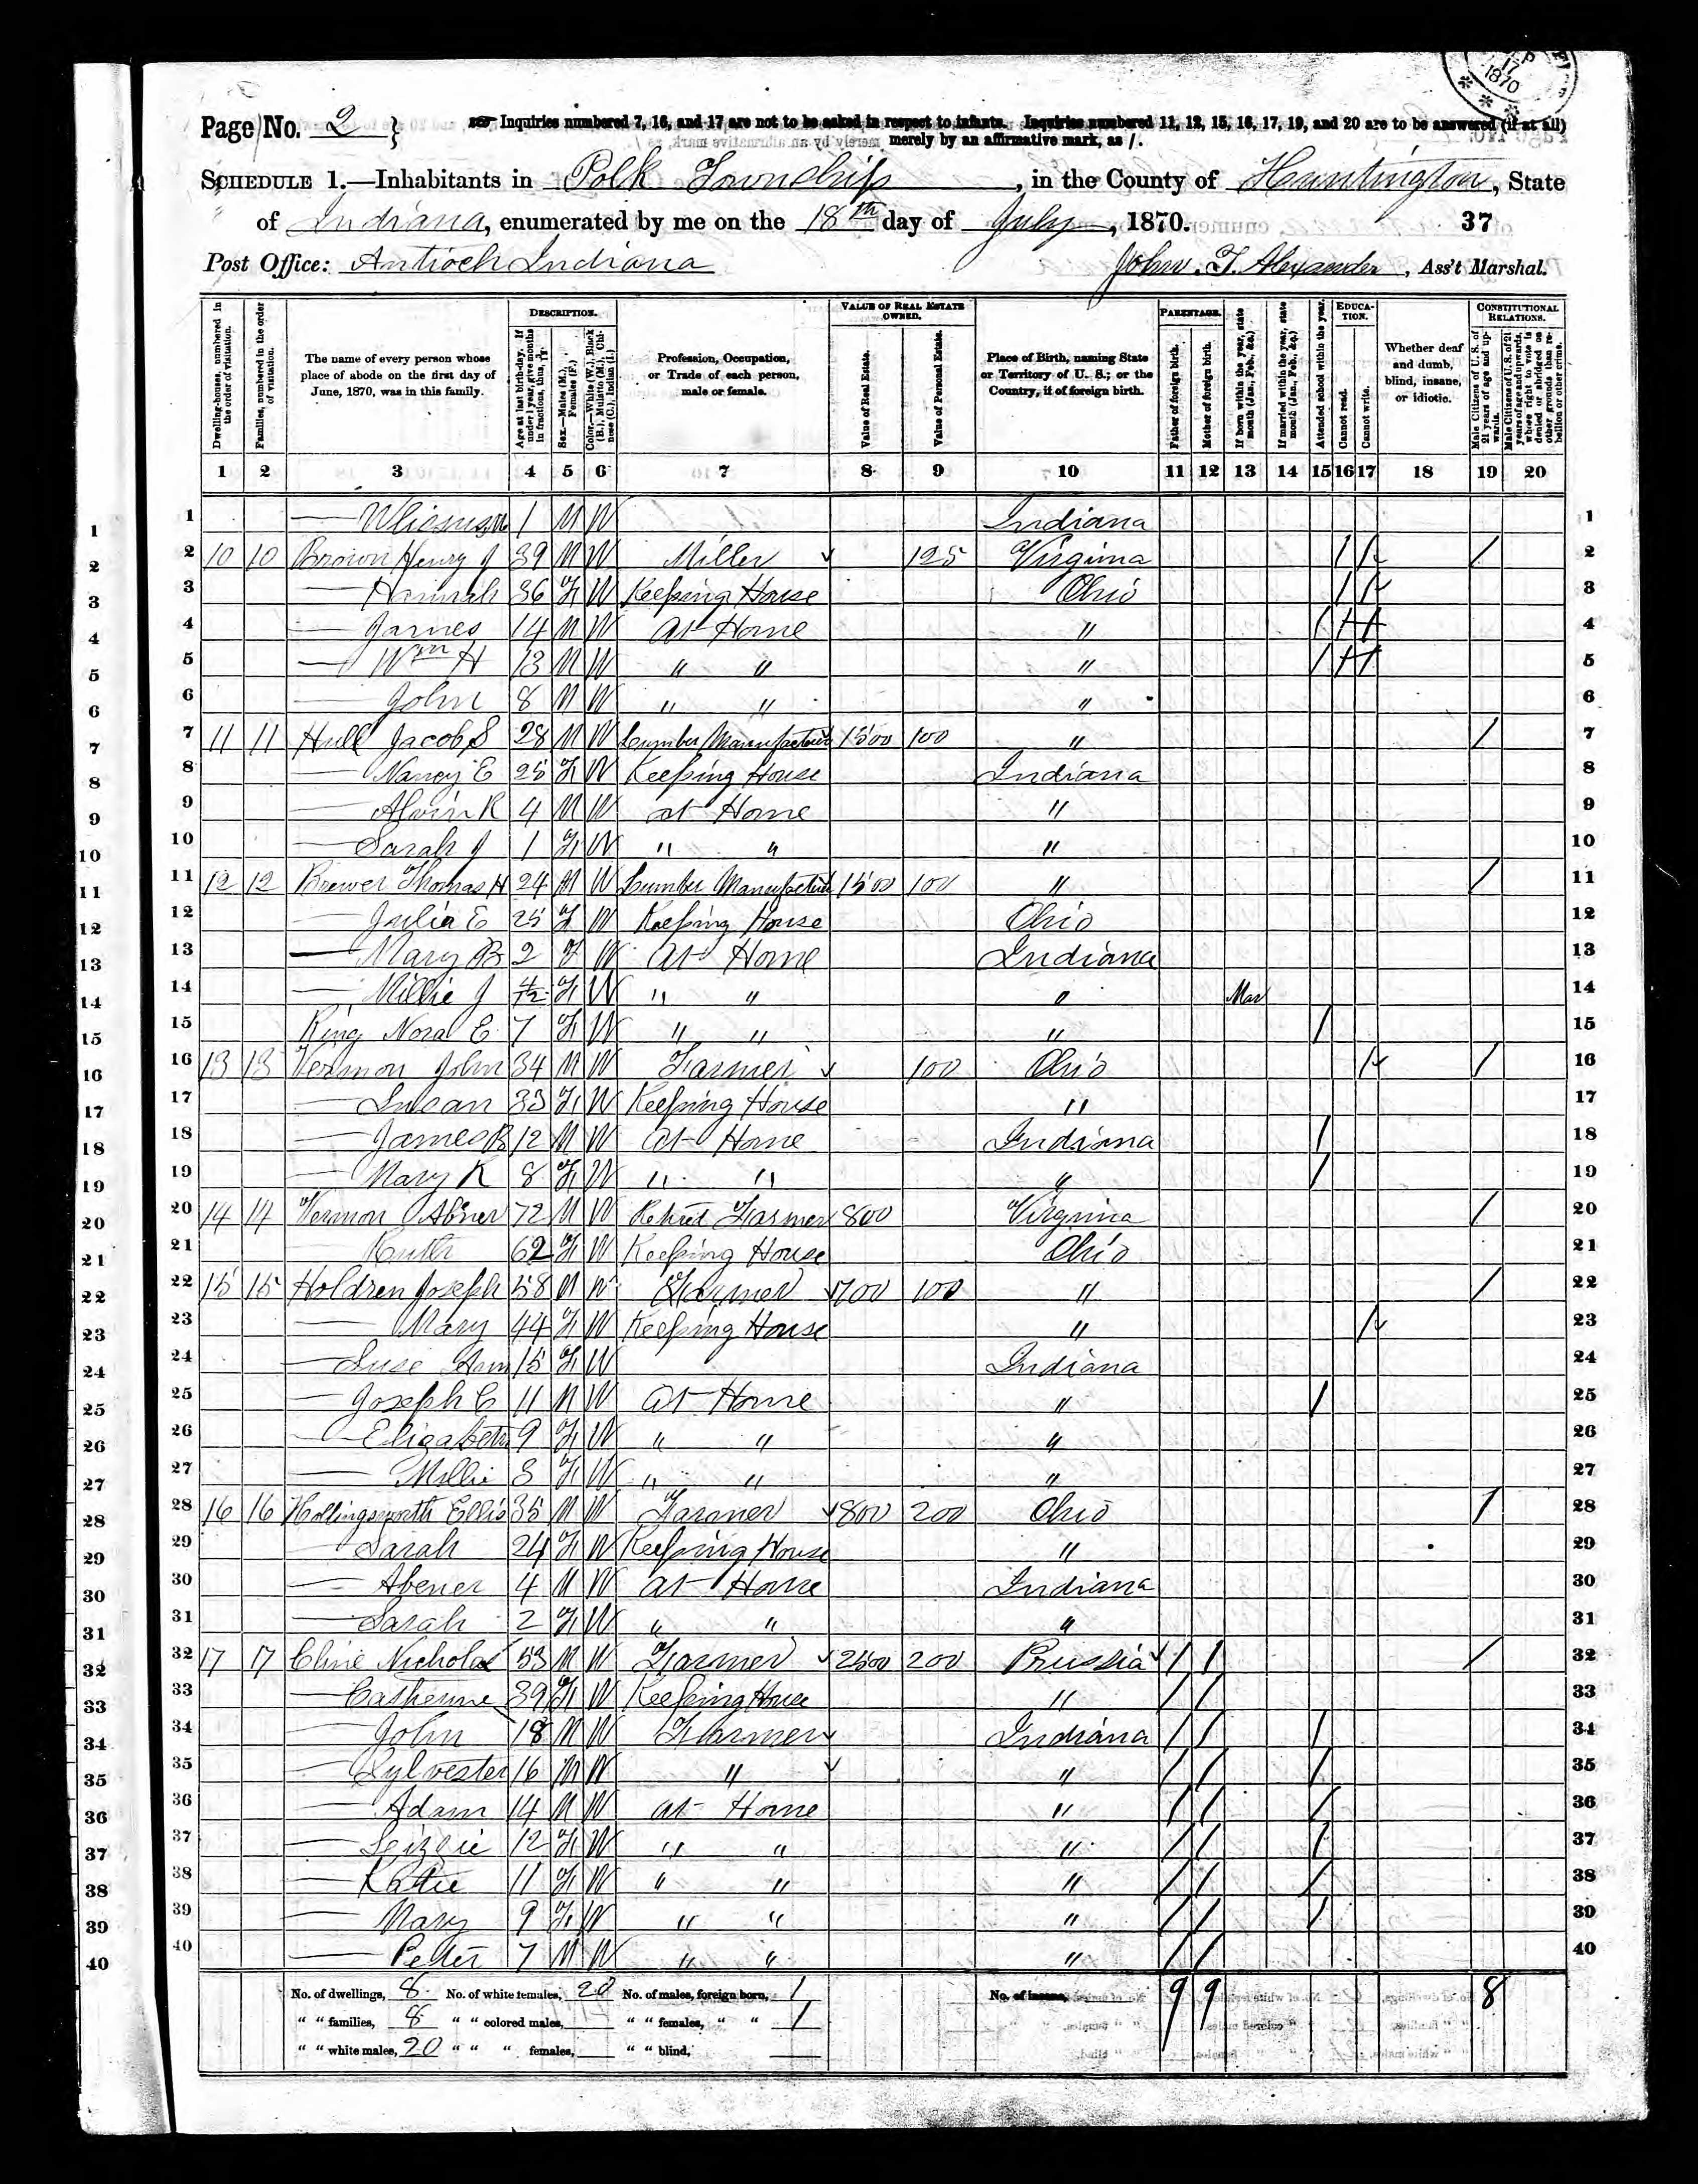 SEP 17 1870
Page No. 2 } Inquiries numbered 7, 16, and 17 are not to be asked in respect to infants. Inquiries numbered 11, 12, 15, 16, 17, 19, and 20 are to be answered (if at all)
merely by an affirmative mark, as /.
SCHEDULE 1.—Inhabitants in Polk Township, in the County of Huntington, State
of Indiana, enumerated by me on the 18th day of July, 1870. 37
Post Office: Antioch Indiana John. T. Alexander, Ass't Marshal.
Dwelling-houses, numbered in the order of visitation.
Families, numbered in the order of visitation.
The name of every person whose place of abode on the first day of June, 1870, was in this family.
DESCRIPTION.
Age at last birth-day. If under 1 year, give months in fractions, thus, 3/12.
Sex.—Males (M.), Females (F.)
Color.—White (W.), Black (B.), Mulatto (M.), Chinese (C.), Indian (I.)
Profession, Occupation, or Trade of each person, male or female.
VALUE OF REAL ESTATE OWNED.
Value of Real Estate.
Value of Personal Estate.
Place of Birth, naming State or Territory of U. S.; or the Country, if of foreign birth.
PARENTAGE.
Father of foreign birth.
Mother of foreign birth.
If born within the year, state month (Jan., Feb., &c.)
If married within the year, state month (Jan., Feb., &c.)
Attended school within the year.
EDUCATION.
Cannot read.
Cannot write.
Whether deaf and dumb, blind, insane, or idiotic.
CONSTITUTIONAL RELATIONS.
Male Citizens of U. S. of 21 years of age and upwards.
Male Citizens of U. S. of 21 years of age and upwards, whose right to vote is denied or abridged on other grounds than rebellion or other crime.
1 2 3 4 5 6 7 8 9 10 11 12 13 14 15 16 17 18 19 20
1 — 1 M W Indiana 1
2 10 10 Brown Henry J 39 M W Miller 125 Virginia / / / 2
3 — Hannah 36 F W Keeping House Ohio / / 3
4 — James 14 M W At Home " / / / 4
5 — Wm H 13 M W " " " / / / 5
6 — John 8 M W " " " 6
7 11 11 Hull Jacob S 28 M W Lumber Manufacturer 1500 100 " / 7
8 — Nancy E 25 F W Keeping House Indiana 8
9 — Alvin R 4 M W at Home " 9
10 — Sarah J 1 F W " " " 10
11 12 12 Brewer Thomas H 24 M W Lumber Manufacturer 1500 100 " / 11
12 — Julia E 25 F W Keeping House Ohio 12
13 — Mary B 2 F W At Home Indiana 13
14 — Millie J 4/12 F W " " " Mar 14
15 King Nora E 7 F W " " " / 15
16 13 13 Vermon John 34 M W Farmer 100 Ohio / / 16
17 — Susan 33 F W Keeping House " 17
18 — James B 12 M W At Home Indiana / 18
19 — Mary K 8 F W " " " / 19
20 14 14 Vermon Abner 72 M W Retired Farmer 800 Virginia / 20
21 Ruth 62 F W Keeping House Ohio 21
22 15 15 Holdren Joseph 58 M W Farmer 700 100 " / 22
23 — Mary 44 F W Keeping House " / 23
24 — Ann 15 F W Indiana 24
25 — Joseph C 11 M W At Home " / 25
26 — Elizabeth 9 F W " " " 26
27 — Millie 3 F W " " " 27
28 16 16 Hollingsworth Ellis 35 M W Farmer 800 200 Ohio / 28
29 — Sarah 24 F W Keeping House " 29
30 — Abener 4 M W at Home Indiana 30
31 — Sarah 2 F W " " " 31
32 17 17 Cline Nicholas 53 M W Farmer 2500 200 Prussia / / / 32
33 — Catherine 39 F W Keeping House " / / 33
34 — John 18 M W Farmer Indiana / / / 34
35 — Sylvester 16 M W " " / / / 35
36 — Adam 14 M W at Home " / / / 36
37 — Leizzie 12 F W " " " / / / 37
38 — Katie 11 F W " " " / / / 38
39 — Mary 9 F W " " " / / / 39
40 — Petter 7 M W " " " / / 40
No. of dwellings, 8. No. of white females, 20 No. of males, foreign born, 1 No. of insane, 9 9 8
" " families, 8 " " colored males, " " females, " " 1
" " white males, 20 " " " females, " " blind,